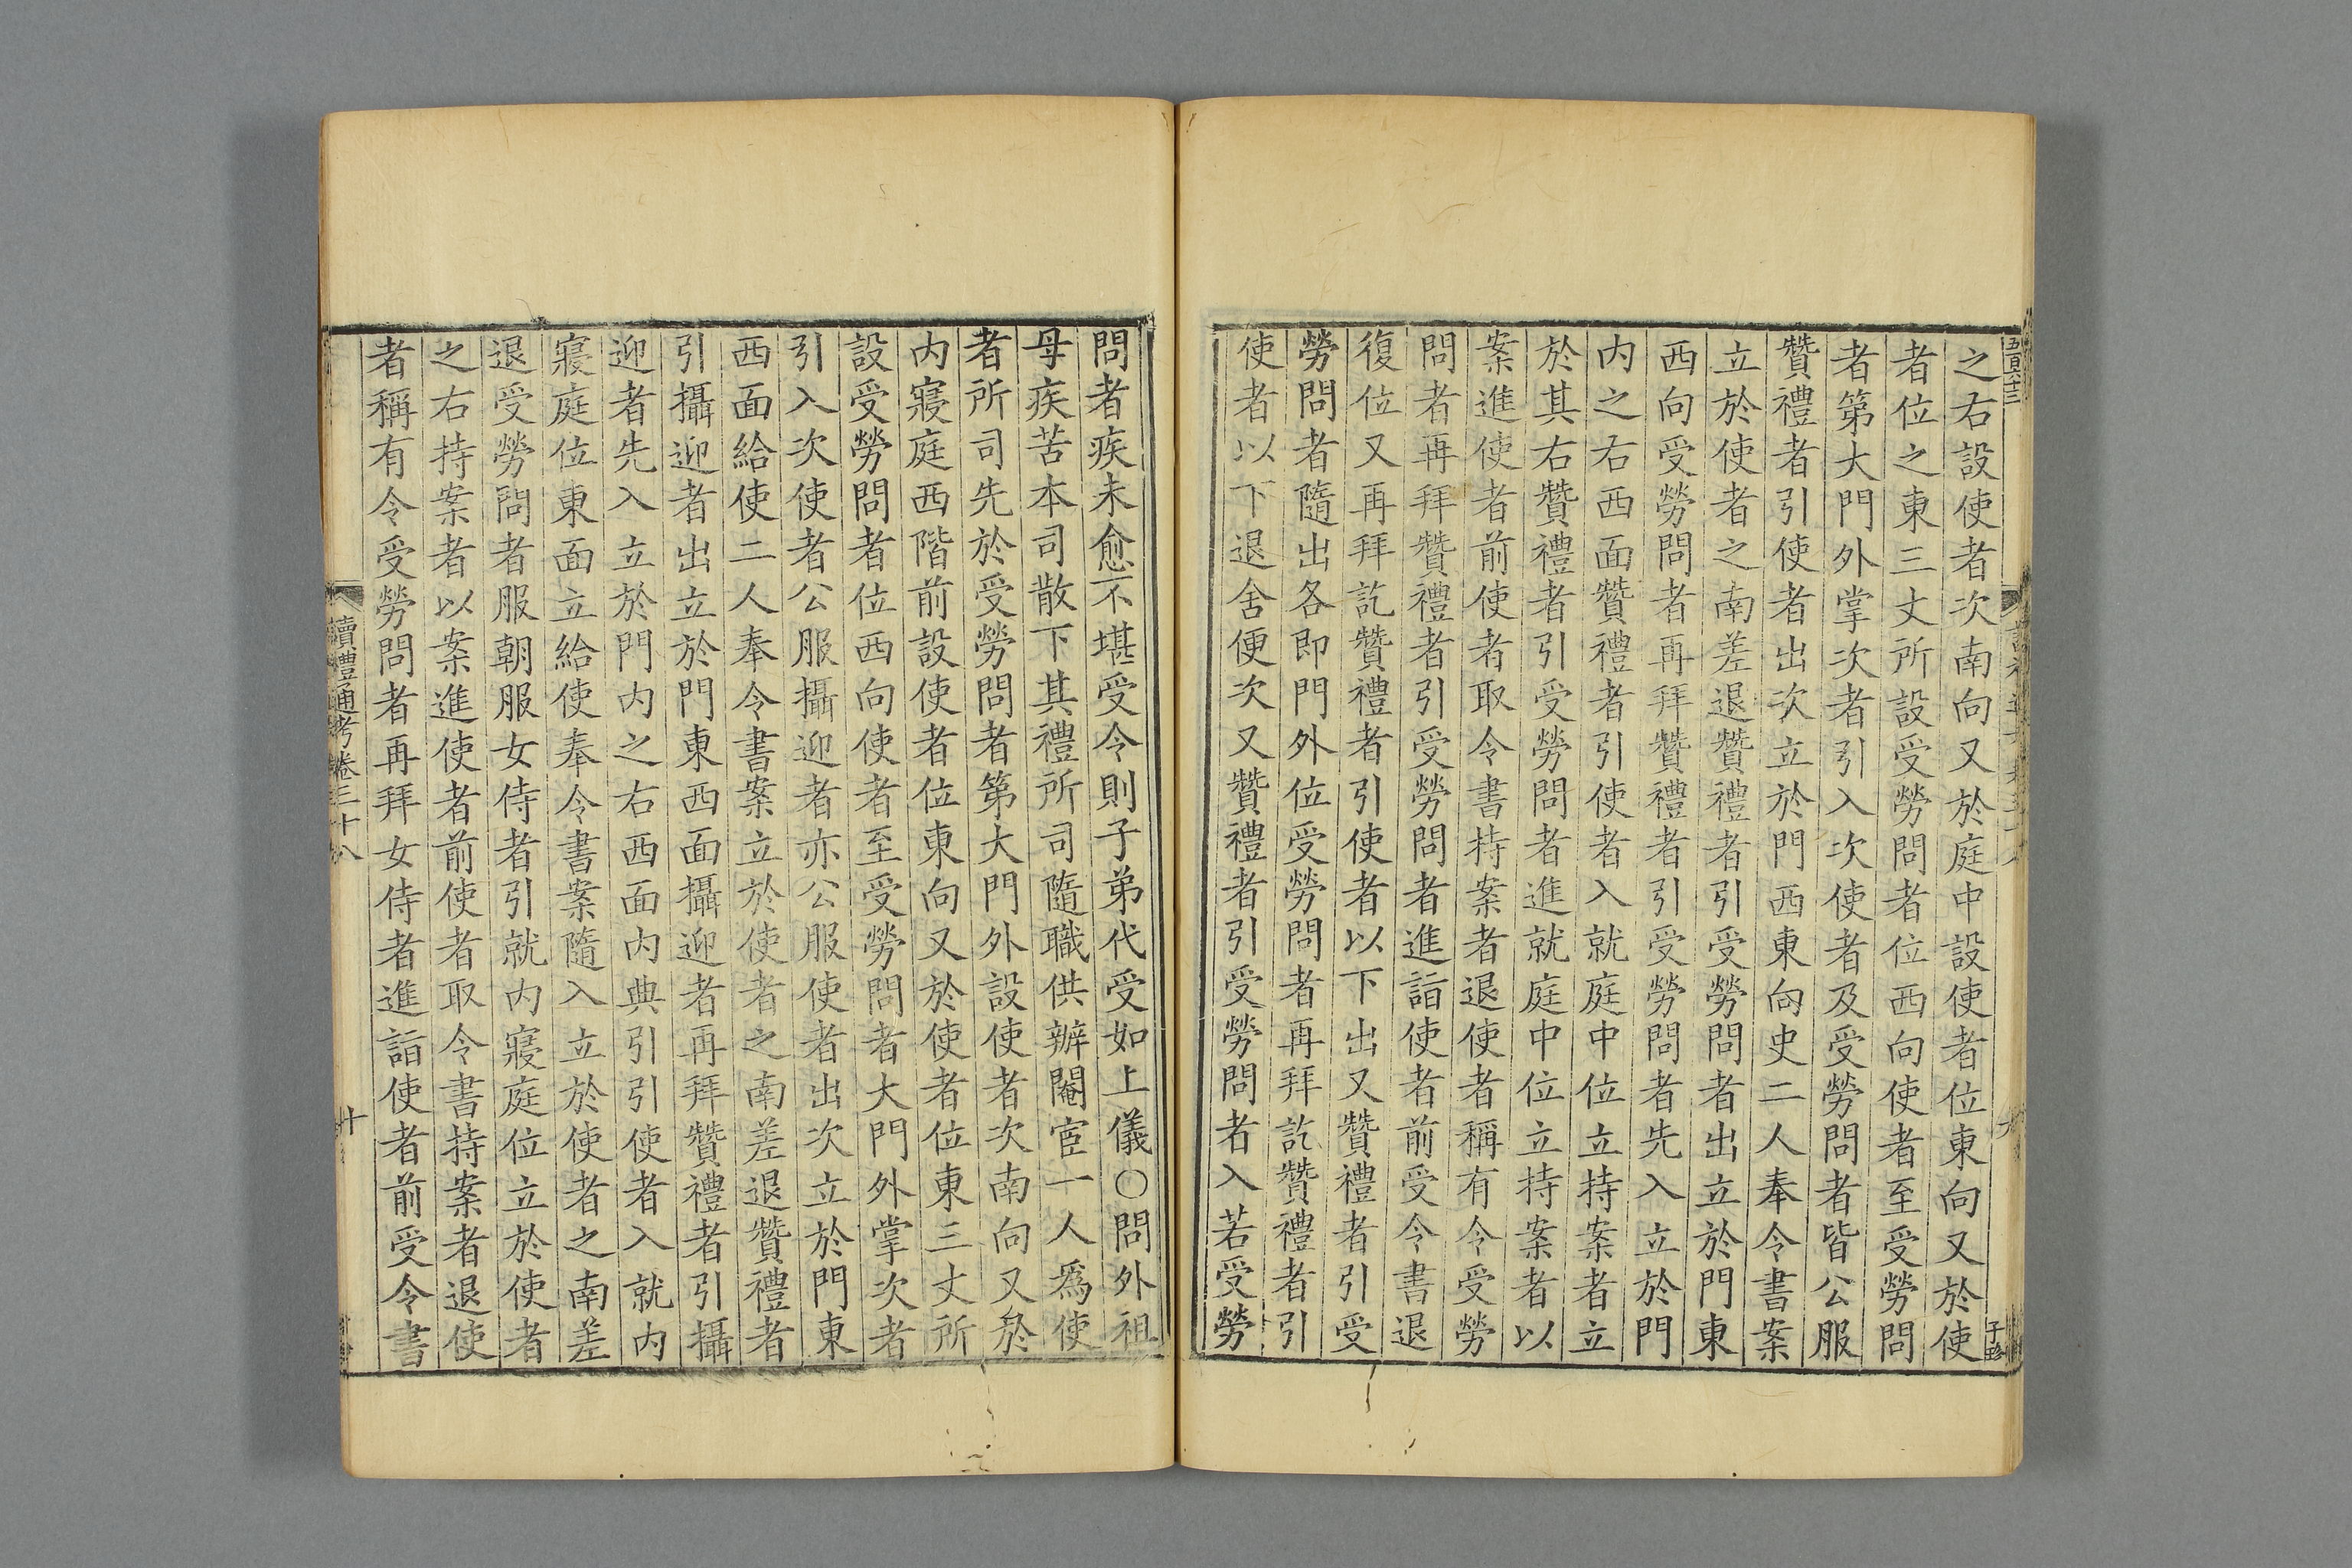 之右設使者次南向又於庭中設使者位東向又於使
者位之東三丈所設受勞問者位西向使者至受勞問
者第大門外掌次者引入次使者及受勞問者皆公服
贊禮者引使者出次立於門西東向史二人奉令書案
立於使者之南差退贊禮者引受勞問者出立於門東
西向受勞問者再拜贊禮者引受勞問者先入立於門
内之右西面贊禮者引使者入就庭中位立持案者立
於其右贊禮者引受勞問者進就庭中位立持案者以
案進使者前使者取令書持案者退使者稱有令受勞
問者再拜贊禮者引受勞問者進詣使者前受令書退
復位又再拜訖贊禮者引使者以下出又贊禮者引受
勞問者隨出各即門外位受勞問者再拜訖贊禮者引
使者以下退舍便次又贊禮者引受勞問者入若受勞
問者疾未愈不堪受令則子弟代受如上儀○問外祖
母疾苦本司散下其禮所司隨職供辦閹宦一人爲使
者所司先於受勞問者第大門外設使者次南向又於
内寢庭西階前設使者位東向又於使者位東三丈所
設受勞問者位西向使者至受勞問者大門外掌次者
引入次使者公服攝迎者亦公服使者出次立於門東
西面給使二人奉令書案立於使者之南差退贊禮者
引攝迎者出立於門東西面攝迎者再拜贊禮者引攝
迎者先入立於門内之右西面内典引引使者入就内
寢庭位東面立給使奉令書案隨入立於使者之南差
退受勞問者服朝服女侍者引就内寢庭位立於使者
之右持案者以案進使者前使者取令書持案者退使
者稱有令受勞問者再拜女侍者進詣使者前受令書
讀禮通考卷三十八
十